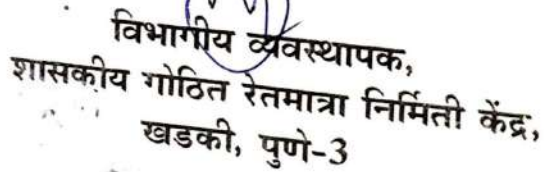 विभागीय व्यवस्थापक,
शासकीय गोठित रेतमात्रा निर्मिती केंद्र,
खडकी, पुणे-3